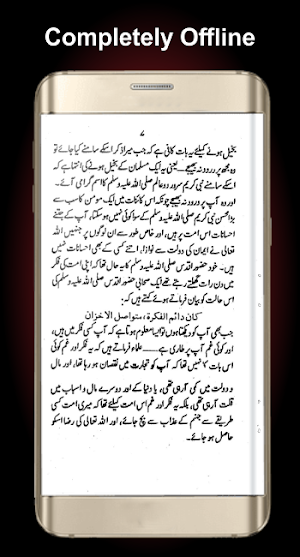 Completely Offline
۷
بخیل ہونے کیلئے یہ بات کافی ہے کہ جب میرا ذکر اسکے سامنے کیا جائے تو
وہ مجھ پر درود نہ بھیجے۔ یعنی یہ ایک مسلمان کے بخیل ہونے کی انتہا ہے کہ
اسکے سامنے نبی کریم سرور دو عالم صلی اللہ علیہ وسلم کا اسم گرامی آئے۔
اور وہ آپ پر درود نہ بھیجے چونکہ اس کائنات میں ایک مومن کا سب سے
بڑا محسن نبی کریم صلی اللہ علیہ وسلم کے سوا کوئی نہیں ہوسکتا، آپ کے جتنے
احسانات اس امت پر ہیں، اور خاص طور سے ان لوگوں پر جنہیں اللہ
تعالی نے ایمان کی دولت سے نوازا، اتنے کسی کے بھی احسانات نہیں
ہیں۔ خود حضور اقدس صلی اللہ علیہ وسلم کا یہ حال تھا کہ اپنی امت کی فکر
میں دن رات گھلتے رہتے تھے ایک صحابی حضور اقدس صلی اللہ علیہ وسلم کی
اس حالت کو بیان فرماتے ہوئے کہتے ہیں کہ:
کان دائم الفکرۃ، متواصل الاحزان
جب بھی آپ کو دیکھتا ہوں تو ایسا معلوم ہوتا ہے کہ آپ کسی فکر میں ہیں،
اور کوئی غم آپ پر طاری ہے — علماء فرماتے ہیں کہ یہ فکر اور غم کوئی
اس بات کا نہیں تھا کہ آپ کو تجارت میں نقصان ہو رہا تھا، اور مال
و دولت میں کمی آرہی تھی، یا دنیا کے اور دوسرے مال و اسباب میں
قلت آرہی تھی، بلکہ یہ فکر اور غم اس امت کیلئے تھا کہ میری امت کسی
طریقے سے جہنم کے عذاب سے بچ جائے، اور اللہ تعالی کی رضا اسکو
حاصل ہو جائے۔